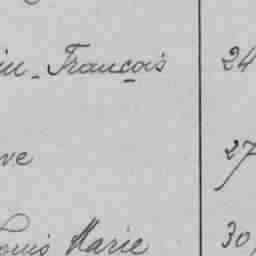 François 24
ve 27
Louis Marie 30